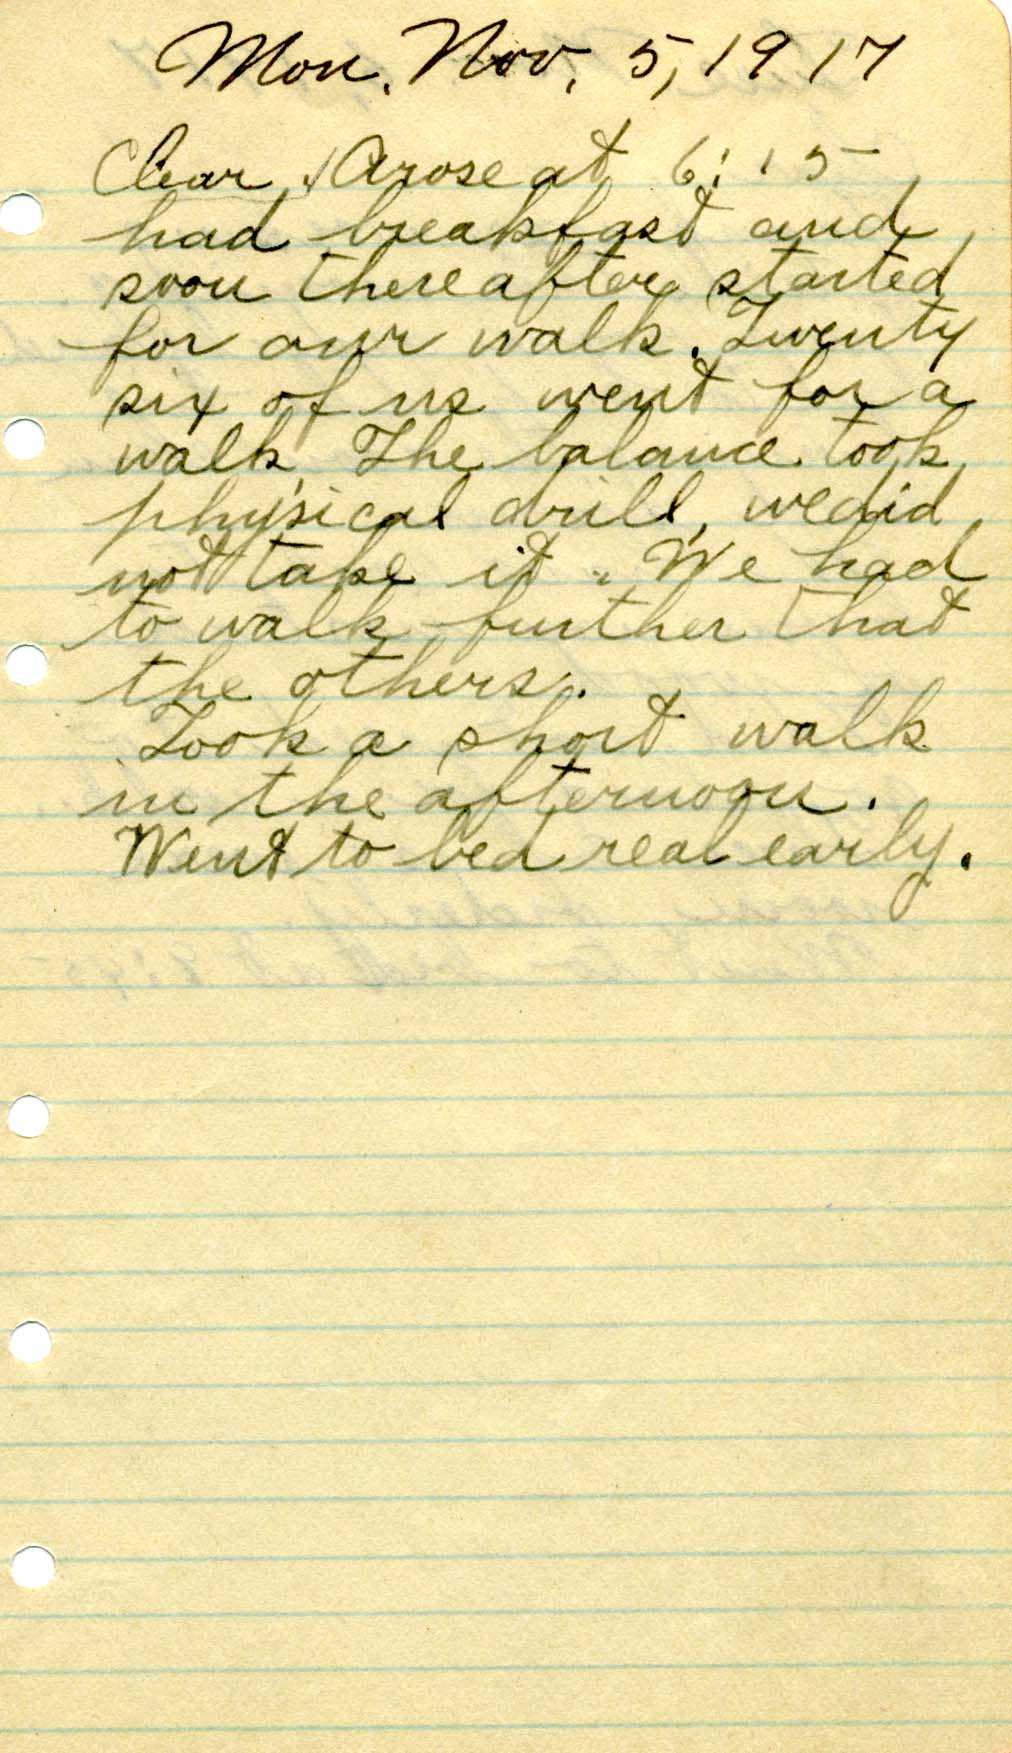 Mon. Nov. 5, 1917
Clear, Arose at 6:15
had breakfast and
soon thereafter started
for our walk. Twenty
six of us went for a
walk. The balance took
physical drill, we did
not take it. We had
to walk further that
the others.
Took a short walk
in the afternoon.
Went to bed real early.